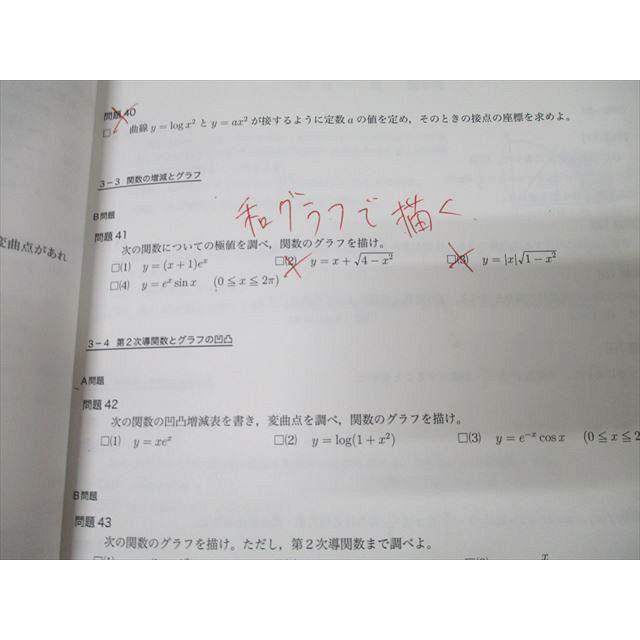 問題40
□ 曲線 y = log x² と y = ax² が接するように定数 a の値を定め，そのときの接点の座標を求めよ。
3－3 関数の増減とグラフ
和グラフで描く
B問題
変曲点があれ
問題41
次の関数についての極値を調べ，関数のグラフを描け。
□(1) y = (x + 1)eˣ □(2) y = x + √(4 − x²) □(3) y = |x|√(1 − x²)
□(4) y = eˣ sin x (0 ≦ x ≦ 2π)
3－4 第2次導関数とグラフの凹凸
A問題
問題42
次の関数の凹凸増減表を書き，変曲点を調べ，関数のグラフを描け。
□(1) y = xeˣ □(2) y = log(1 + x²) □(3) y = e⁻ˣ cos x (0 ≦ x ≦ 2
B問題
問題43
次の関数のグラフを描け。ただし，第2次導関数まで調べよ。